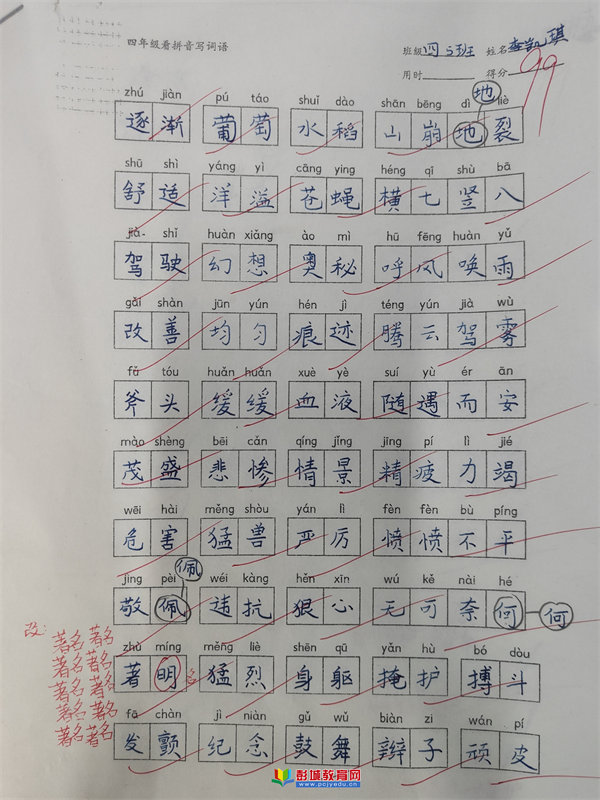 四年级看拼音写词语 班级 四 3班 姓名 李凯琪
用时 得分 99
地
zhú jiàn pú táo shuǐ dào shān bēng dì liè
逐渐 葡萄 水稻 山崩地裂
shū shì yáng yì cāng ying héng qī shù bā
舒适 洋溢 苍蝇 横七竖八
jià shǐ huàn xiǎng ào mì hū fēng huàn yǔ
驾驶 幻想 奥秘 呼风唤雨
gǎi shàn jūn yún hén jì téng yún jià wù
改善 均匀 痕迹 腾云驾雾
fǔ tóu huǎn huǎn xuè yè suí yù ér ān
斧头 缓缓 血液 随遇而安
mào shèng bēi cǎn qíng jǐng jīng pí lì jié
茂盛 悲惨 情景 精疲力竭
wēi hài měng shòu yán lì fèn fèn bù píng
危害 猛兽 严厉 愤愤不平
佩
jìng pèi wéi kàng hěn xīn wú kě nài hé
敬佩 违抗 狠心 无可奈何 何
改:
著名 著名
著名 著名
著名 著名
著名 著名
著名 著名
zhù míng měng liè shēn qū yǎn hù bó dòu
著明 名 猛烈 身躯 掩护 搏斗
fā chàn jì niàn gǔ wǔ biàn zi wán pí
发颤 纪念 鼓舞 辫子 顽皮
彭城教育网
www.pcjyedu.cn